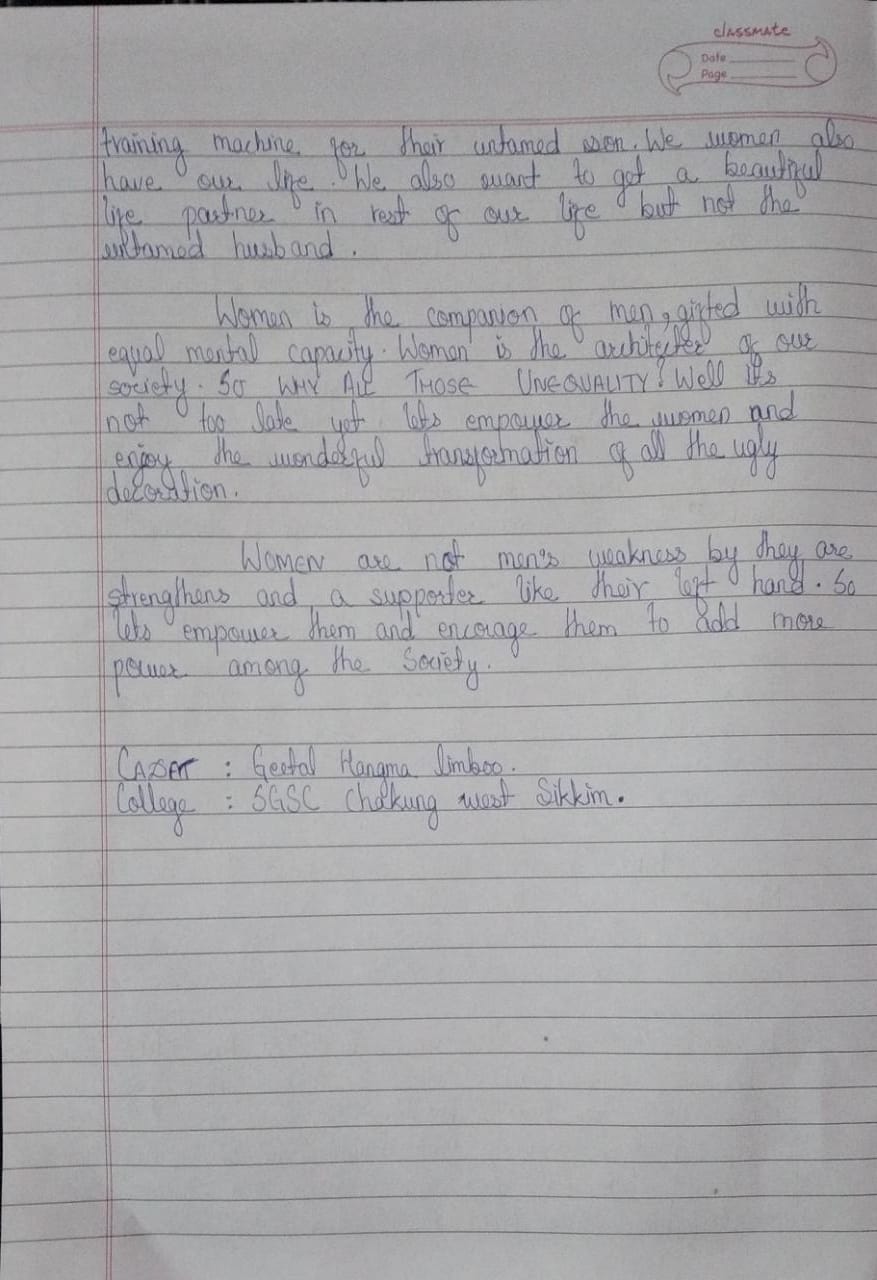 classmate
Date
Page
training machine for their untamed son. We women also
have our life. We also want to get a beautiful
life partner in rest of our life but not the
untamed husband.
Women is the companion of men, gifted with
equal mental capacity. Women is the architecter of our
society. SO WHY ALL THOSE UNEQUALITY? Well its
not too late yet lets empower the women and
enjoy the wonderful transformation of all the ugly
decoration.
Women are not men's weakness by they are
strengthens and a supporter like their left hand. So
lets empower them and encorage them to add more
power among the Society.
CADET : Geetal Hangma limboo.
College : SGSC Chakung west Sikkim.